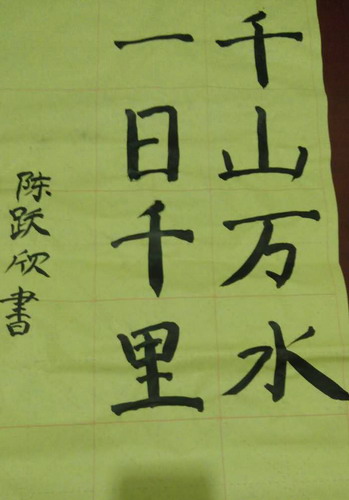 千山万水
一日千里
陈跃欣書